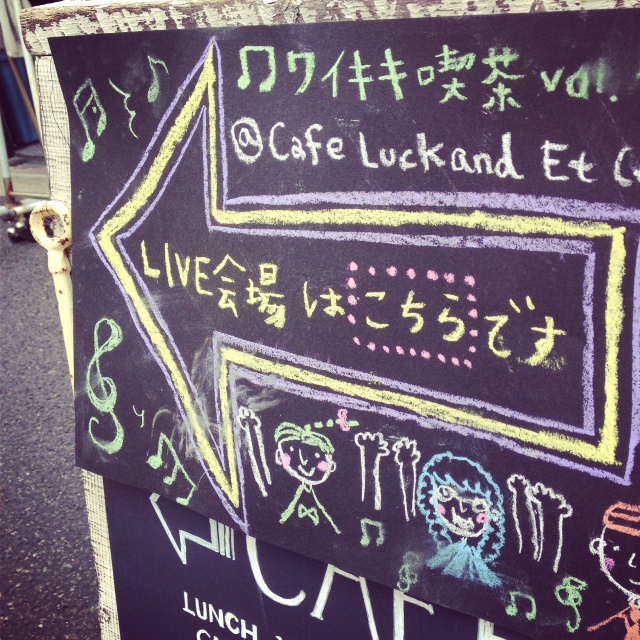 ワイキキ喫茶 vol.
@Cafe Luckand Et
LIVE会場はこちらです
CAFE
LUNCH